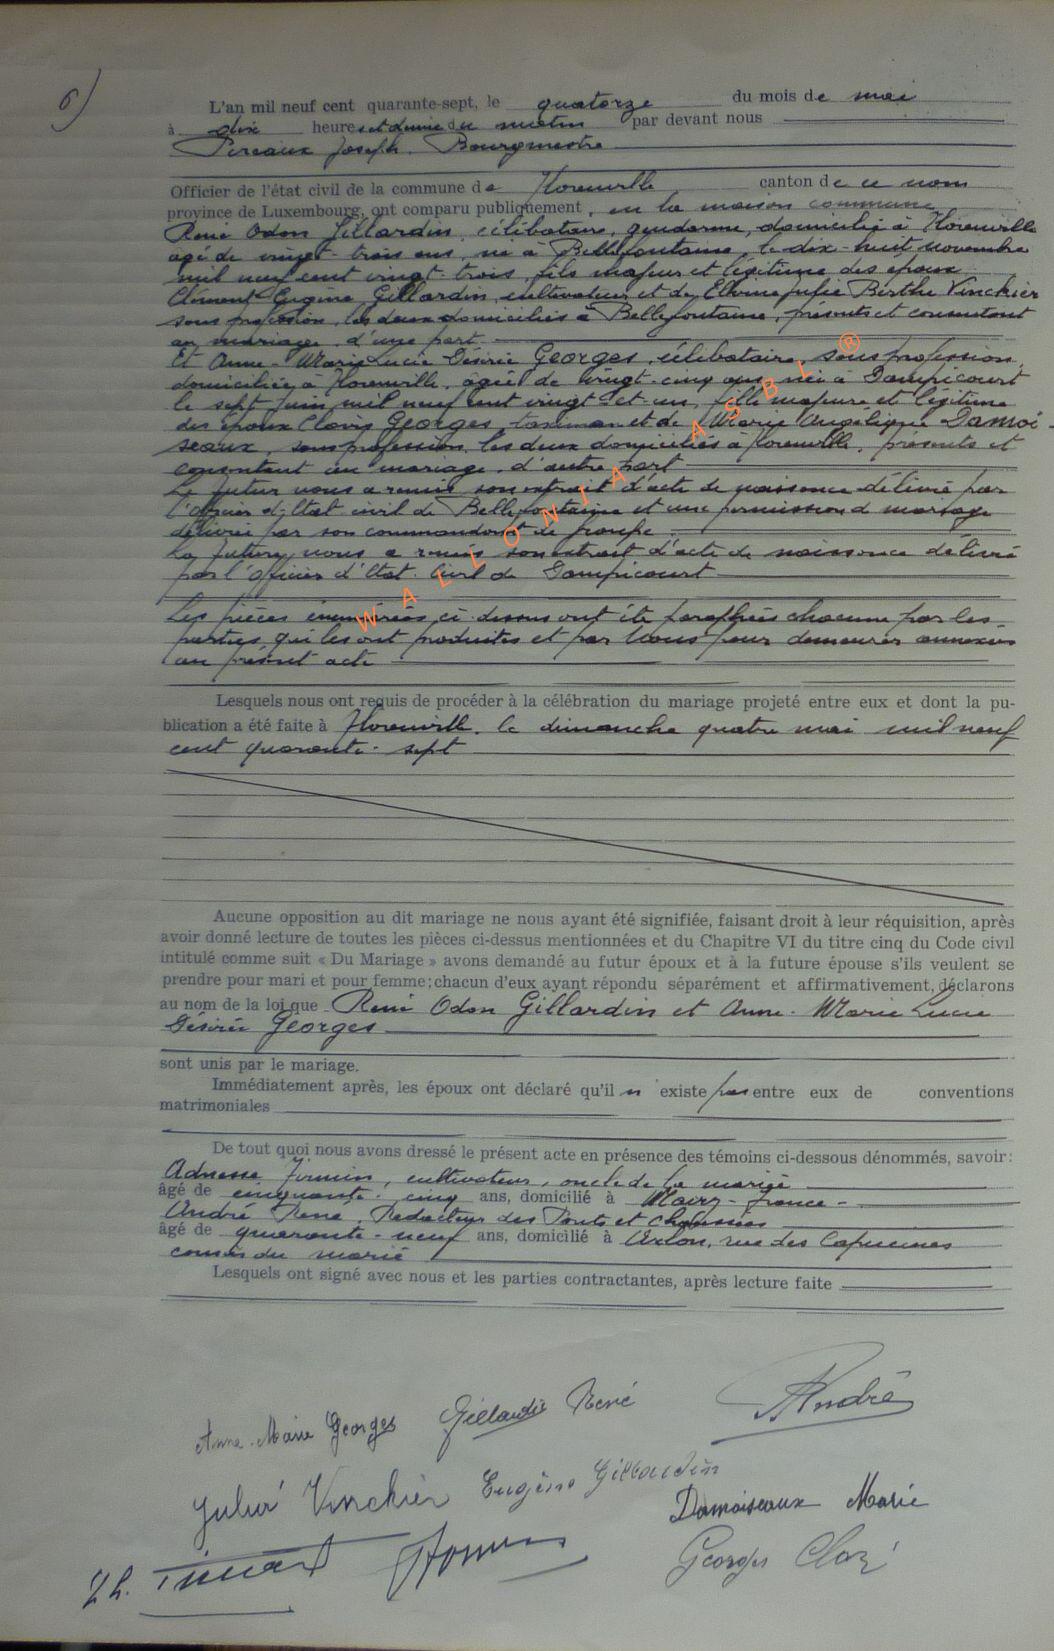 6)
L'an mil neuf cent quarante-sept, le quatorze du mois de mai
à dix heures et demie du matin par devant nous
Joseph. Bourgmestre
Officier de l'état civil de la commune de Florenville canton de ce nom
province de Luxembourg, ont comparu publiquement, en la maison communale
René Odon Gillardin, célibataire, gendarme, domicilié à Florenville
âgé de vingt-trois ans, né à Bellefontaine, le dix-huit novembre
mil neuf cent vingt-trois, fils majeur et légitime des époux
Clément Eugène Gillardin, cultivateur et de Julie Berthe Vinckier
sans profession, les deux domiciliés à Bellefontaine, présents et consentant
au mariage, d'une part.
Et Anne-Marie Lucie Désirée Georges, célibataire, sans profession,
domiciliée à Florenville, âgée de vingt-cinq ans, née à Dampicourt
le sept juin mil neuf cent vingt-et-un, fille majeure et légitime
des époux Clovis Georges, et de Marie Angélique Damoi-
seaux, sans profession, les deux domiciliés à Florenville, présents et
consentant au mariage, d'autre part
Le futur nous a remis son extrait d'acte de naissance délivré par
l'Officier d'Etat civil de Bellefontaine et une permission de mariage
délivrée par son commandant de groupe.
La future nous a remis son extrait d'acte de naissance délivré
par l'Officier d'Etat-Civil de Dampicourt
Les pièces énumérées ci-dessus ont été paraphées chacune par les
parties qui les ont produites et par Nous pour demeurer annexées
au présent acte
Lesquels nous ont requis de procéder à la célébration du mariage projeté entre eux et dont la pu-
blication a été faite à Florenville, le dimanche quatre mai mil neuf
cent quarante-sept
Aucune opposition au dit mariage ne nous ayant été signifiée, faisant droit à leur réquisition, après
avoir donné lecture de toutes les pièces ci-dessus mentionnées et du Chapitre VI du titre cinq du Code civil
intitulé comme suit « Du Mariage » avons demandé au futur époux et à la future épouse s'ils veulent se
prendre pour mari et pour femme; chacun d'eux ayant répondu séparément et affirmativement, déclarons
au nom de la loi que René Odon Gillardin et Anne-Marie Lucie
Désirée Georges
sont unis par le mariage.
Immédiatement après, les époux ont déclaré qu'il n'existe pas entre eux de conventions
matrimoniales
De tout quoi nous avons dressé le présent acte en présence des témoins ci-dessous dénommés, savoir:
Firmin, cultivateur, oncle de la mariée
âgé de cinquante-cinq ans, domicilié à Mairy-France-
André René, Rédacteur des Ponts et Chaussées
âgé de quarante-neuf ans, domicilié à Arlon, rue des Capucines
cousin du marié
Lesquels ont signé avec nous et les parties contractantes, après lecture faite
Anne-Marie Georges Gillardin René André
Vinckier Eugène Gillardin
Damoiseaux Marie
Georges
WALLONIA ASBL ®